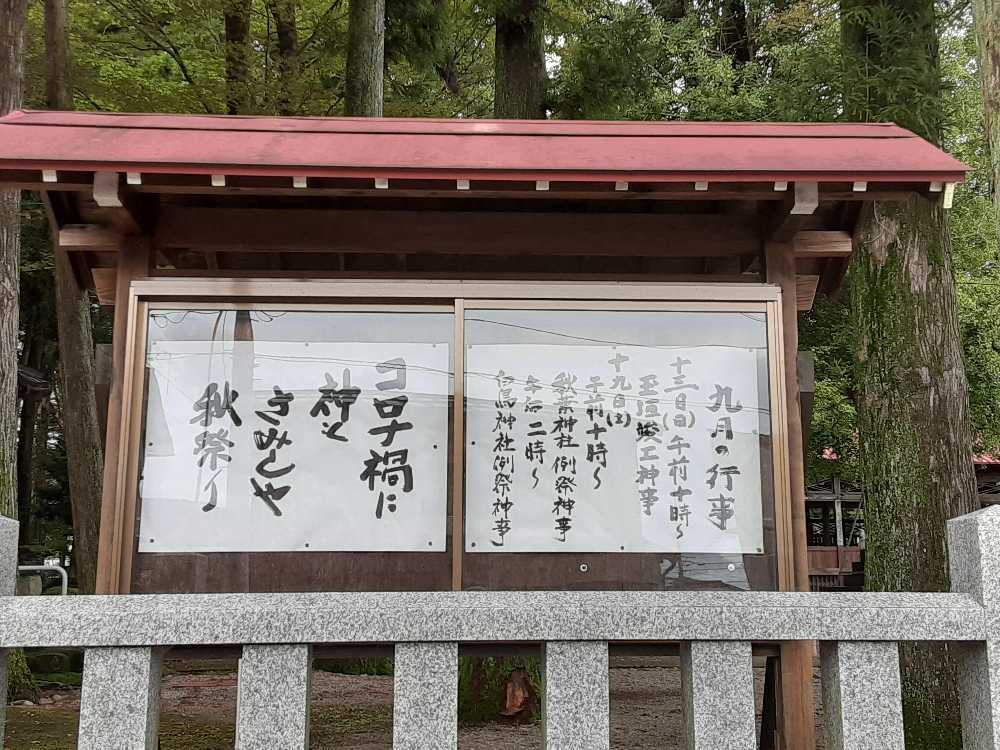 九月の行事
十三日(日)午前十時〜
玉垣竣工神事
十九日(土)
午前十時〜
秋葉神社例祭神事
午后二時〜
白鳥神社例祭神事
コロナ禍に
神と
さみしや
秋祭り